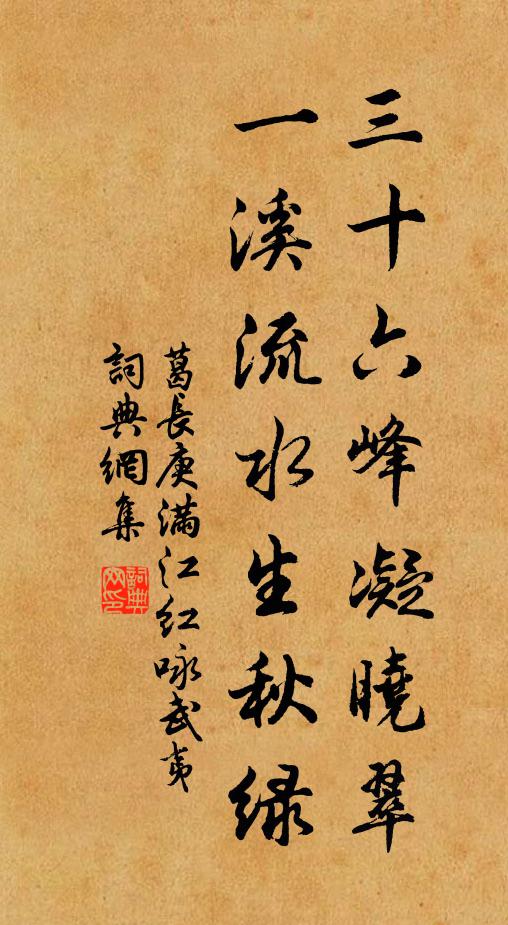 三十六峰凝曉翠
一溪流水生秋綠
葛長庚满江紅咏武夷
詞典網集
詞典网印